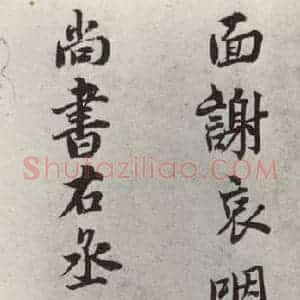 面謝哀咽
尚書右丞
Shufaziliao.com